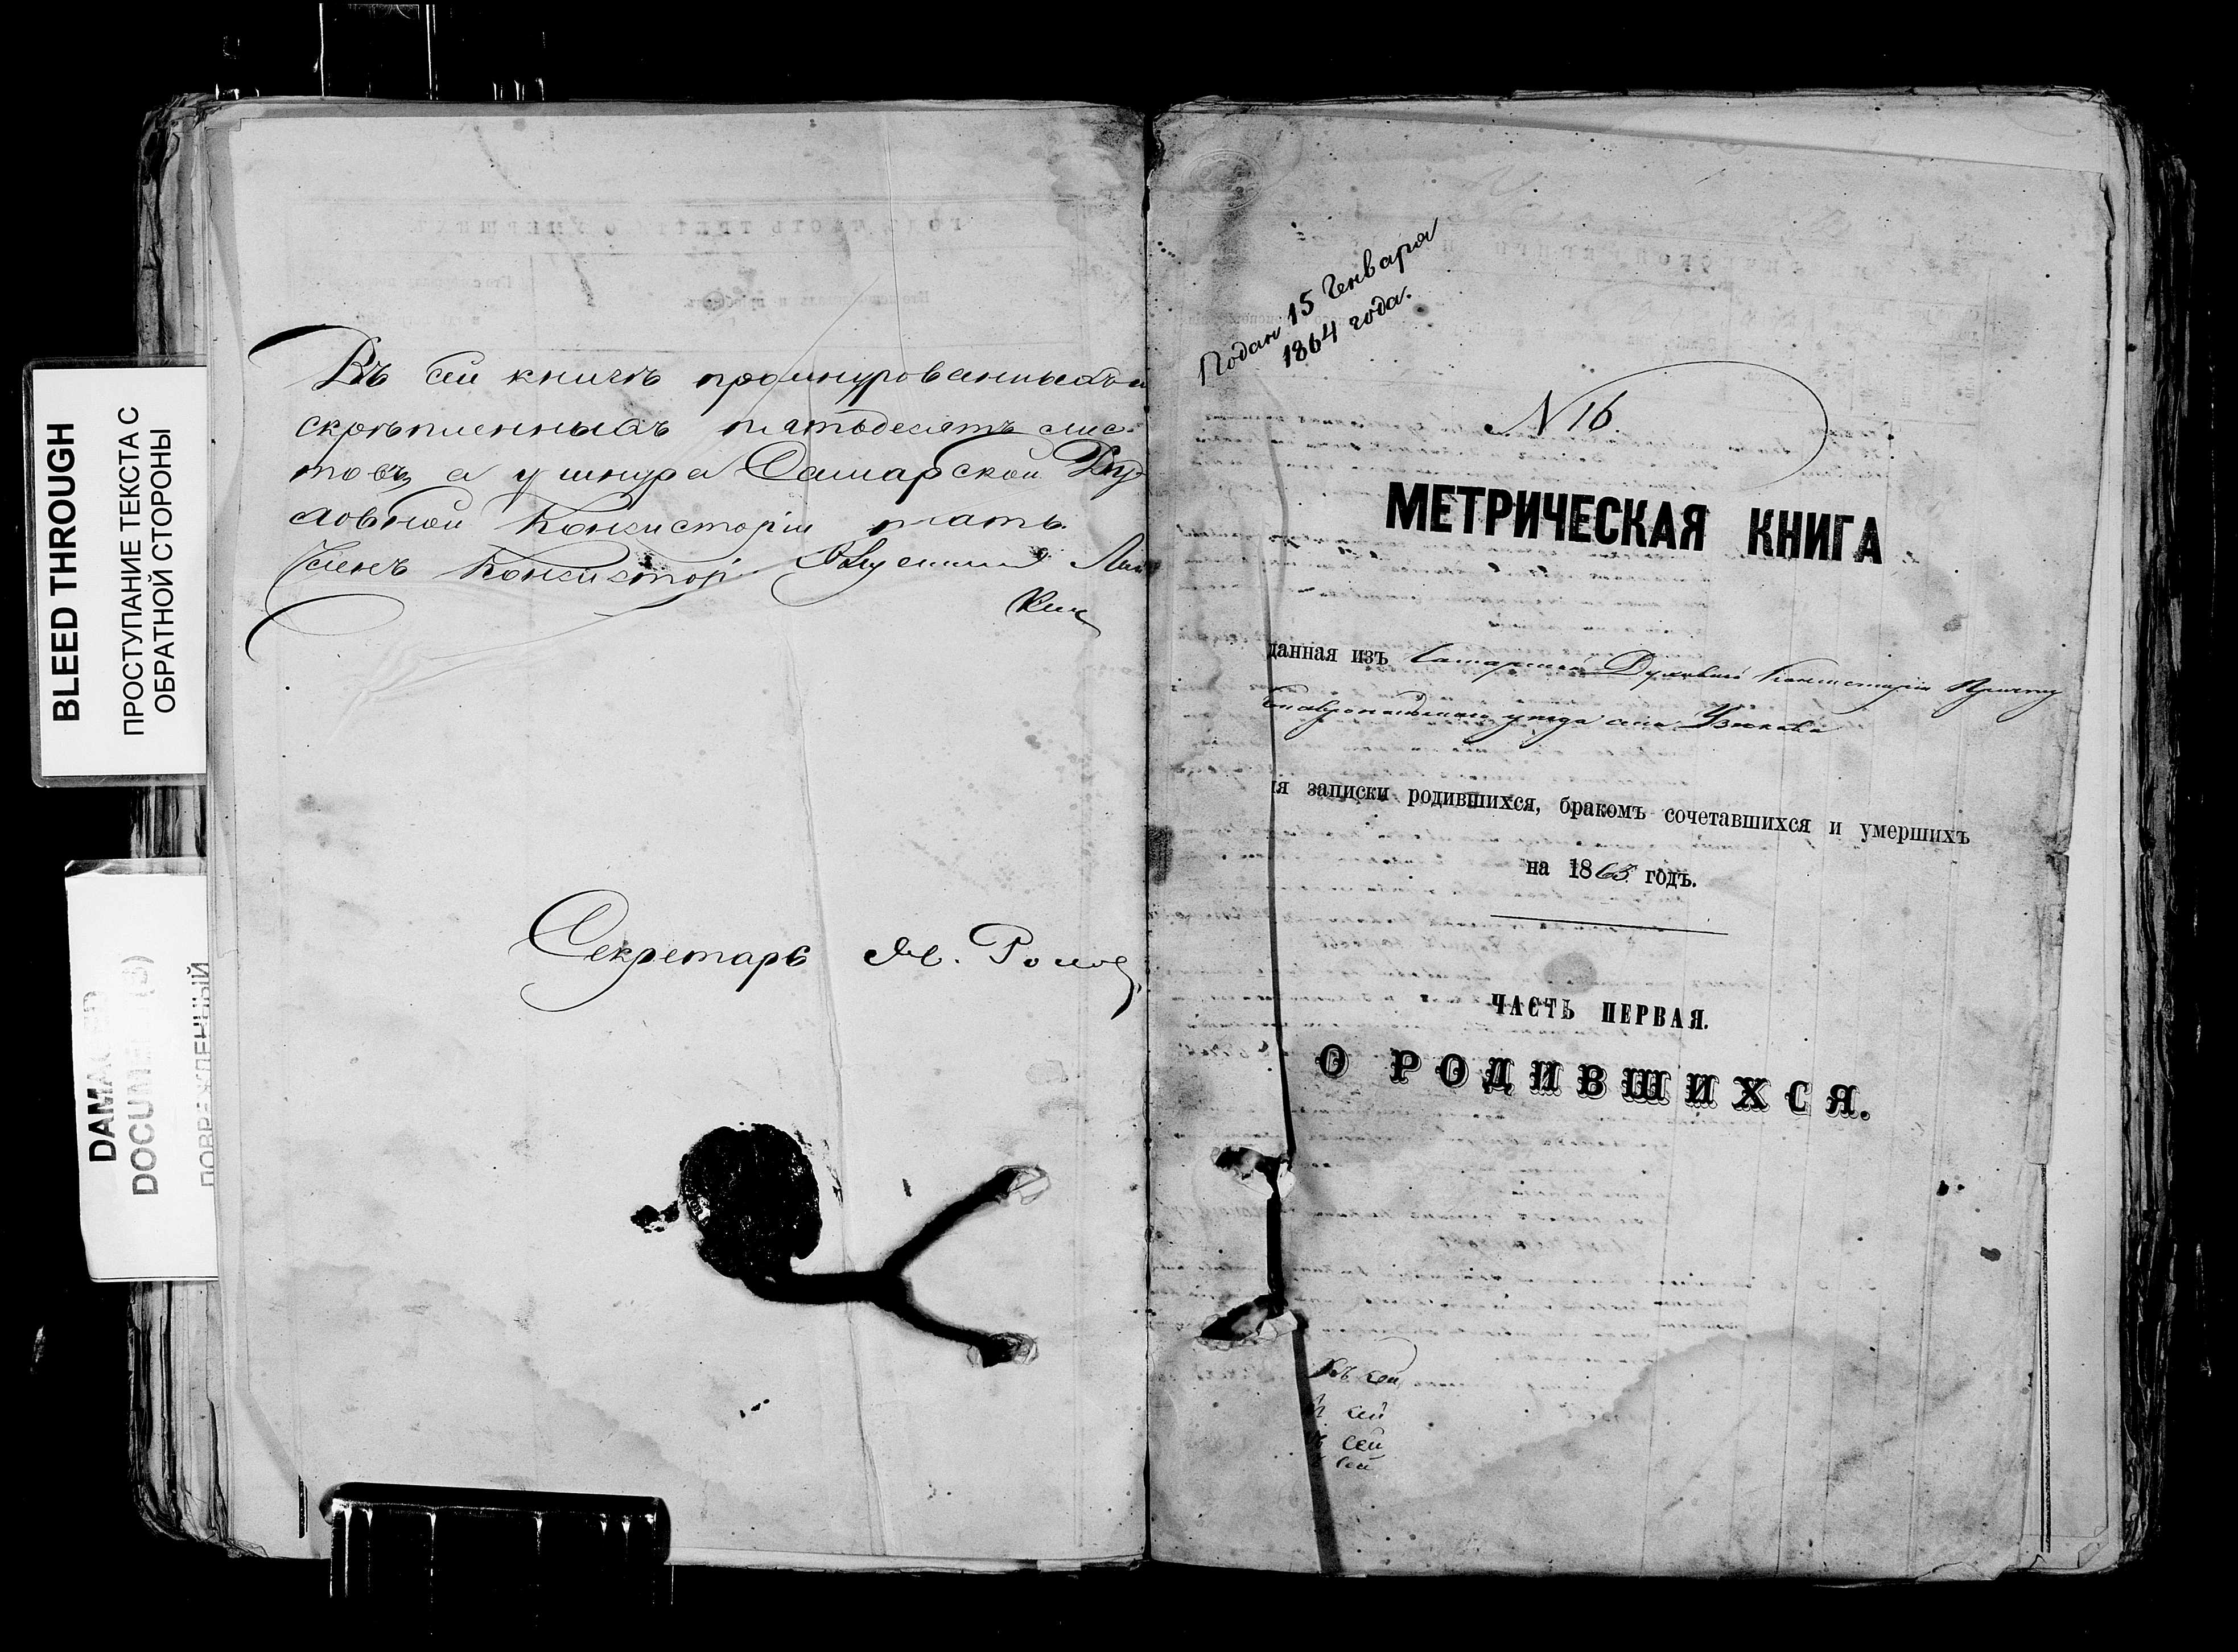 BLEED THROUGH
ПРОСТУПАНИЕ ТЕКСТА С
ОБРАТНОЙ СТОРОНЫ
DAMA
DOCUM
Въ сей книгѣ прошнурованныхъ и
скрѣпленныхъ пятьдесятъ лис-
товъ, а у шнура Самарской Ду-
ховной Консисторіи пять.
Членъ Консисторі
Секретарь
Подан 15 Генваря
1864 года.
N 16.
МЕТРИЧЕСКАЯ КНИГА
данная изъ Самарской Духовной Консисторіи Причту
Ставропольскаго уѣзда села Узюкова
ля записки родившихся, бракомъ сочетавшихся и умершихъ
на 1863 годъ.
ЧАСТЬ ПЕРВАЯ.
О РОДИВШИХСЯ.
Въ сей
сей
сей
сей